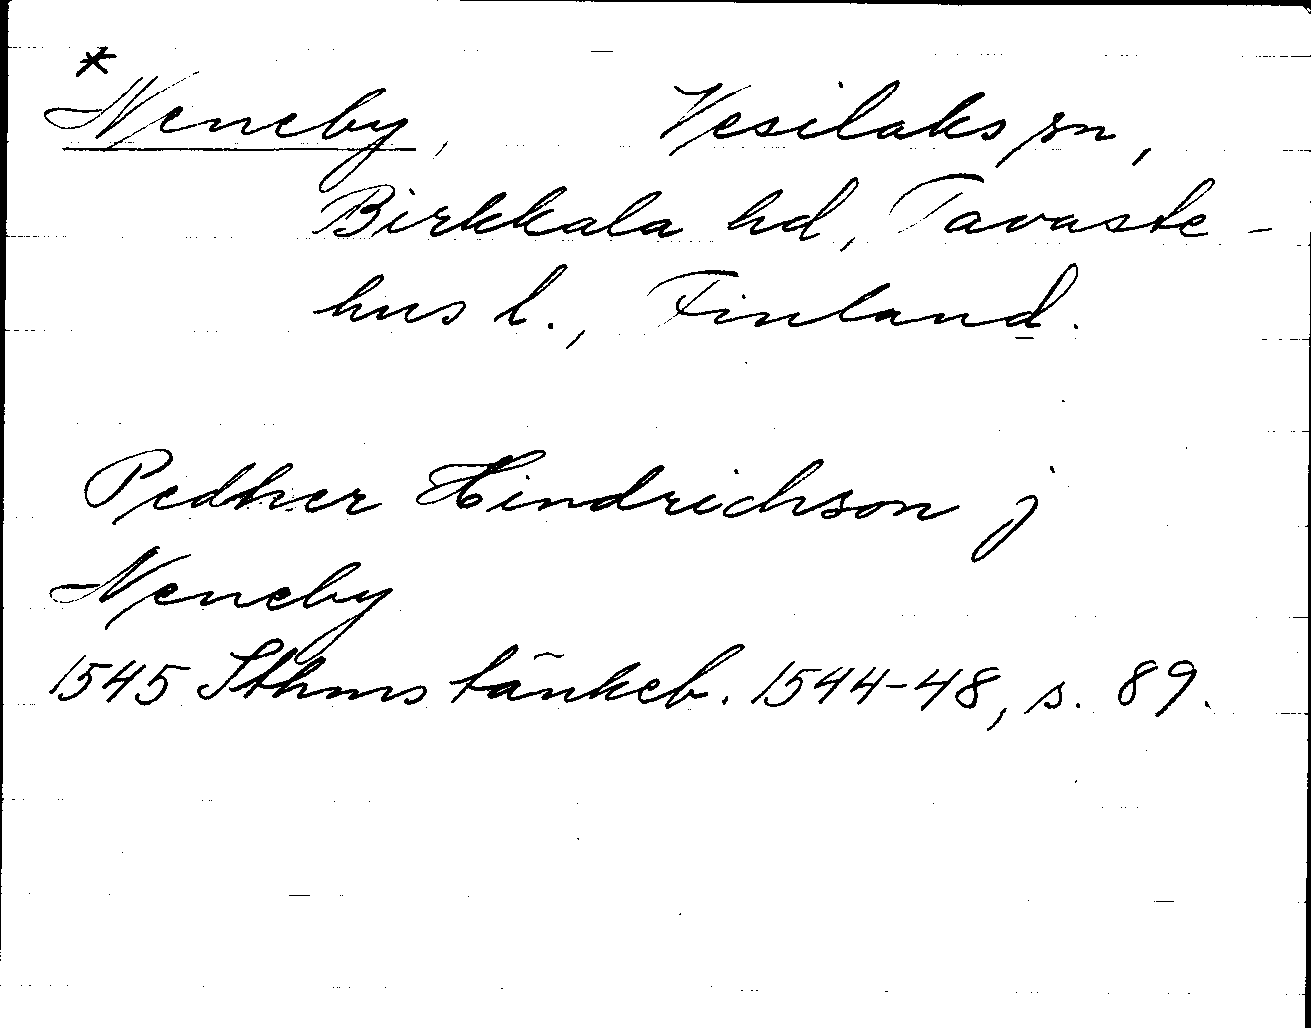 *
Neneby, Vesilaks sn,
Birkkala hd, Tavaste-
hus l., Finland.
Pedher Hindrichson j
Neneby
1545 Sthms tänkeb. 1544-48, s. 89.